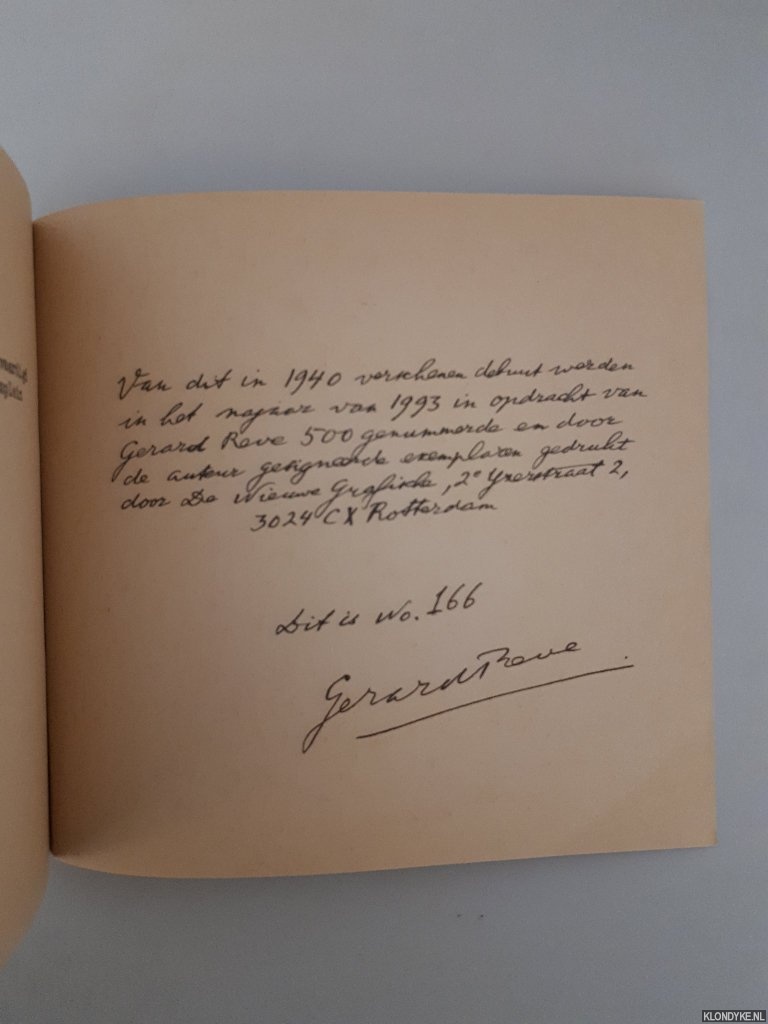 Van dit in 1940 verschenen debuut werden
in het najaar van 1993 in opdracht van
Gerard Reve 500 genummerde en door
de auteur gesigneerde exemplaren gedrukt
door De Nieuwe Grafische, 2e Yzerstraat 2,
3024 CX Rotterdam
Dit is No. 166
Gerard Reve
KLONDYKE.NL